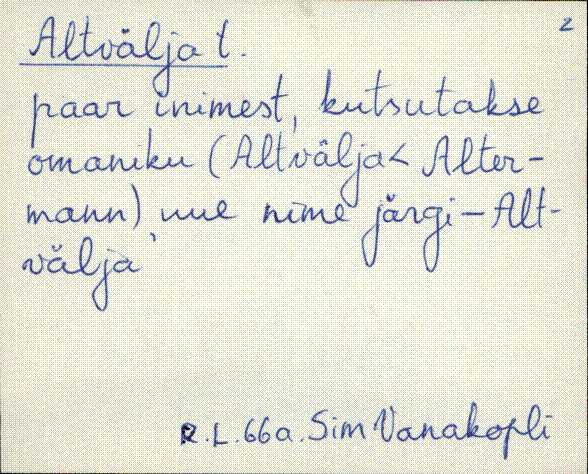 2
Altvälja t.
paar inimest, kutsutakse
omaniku (Altvälja < Alter-
mann) uue nime järgi – Alt-
välja
R.L. 66a. Sim Vanakopli